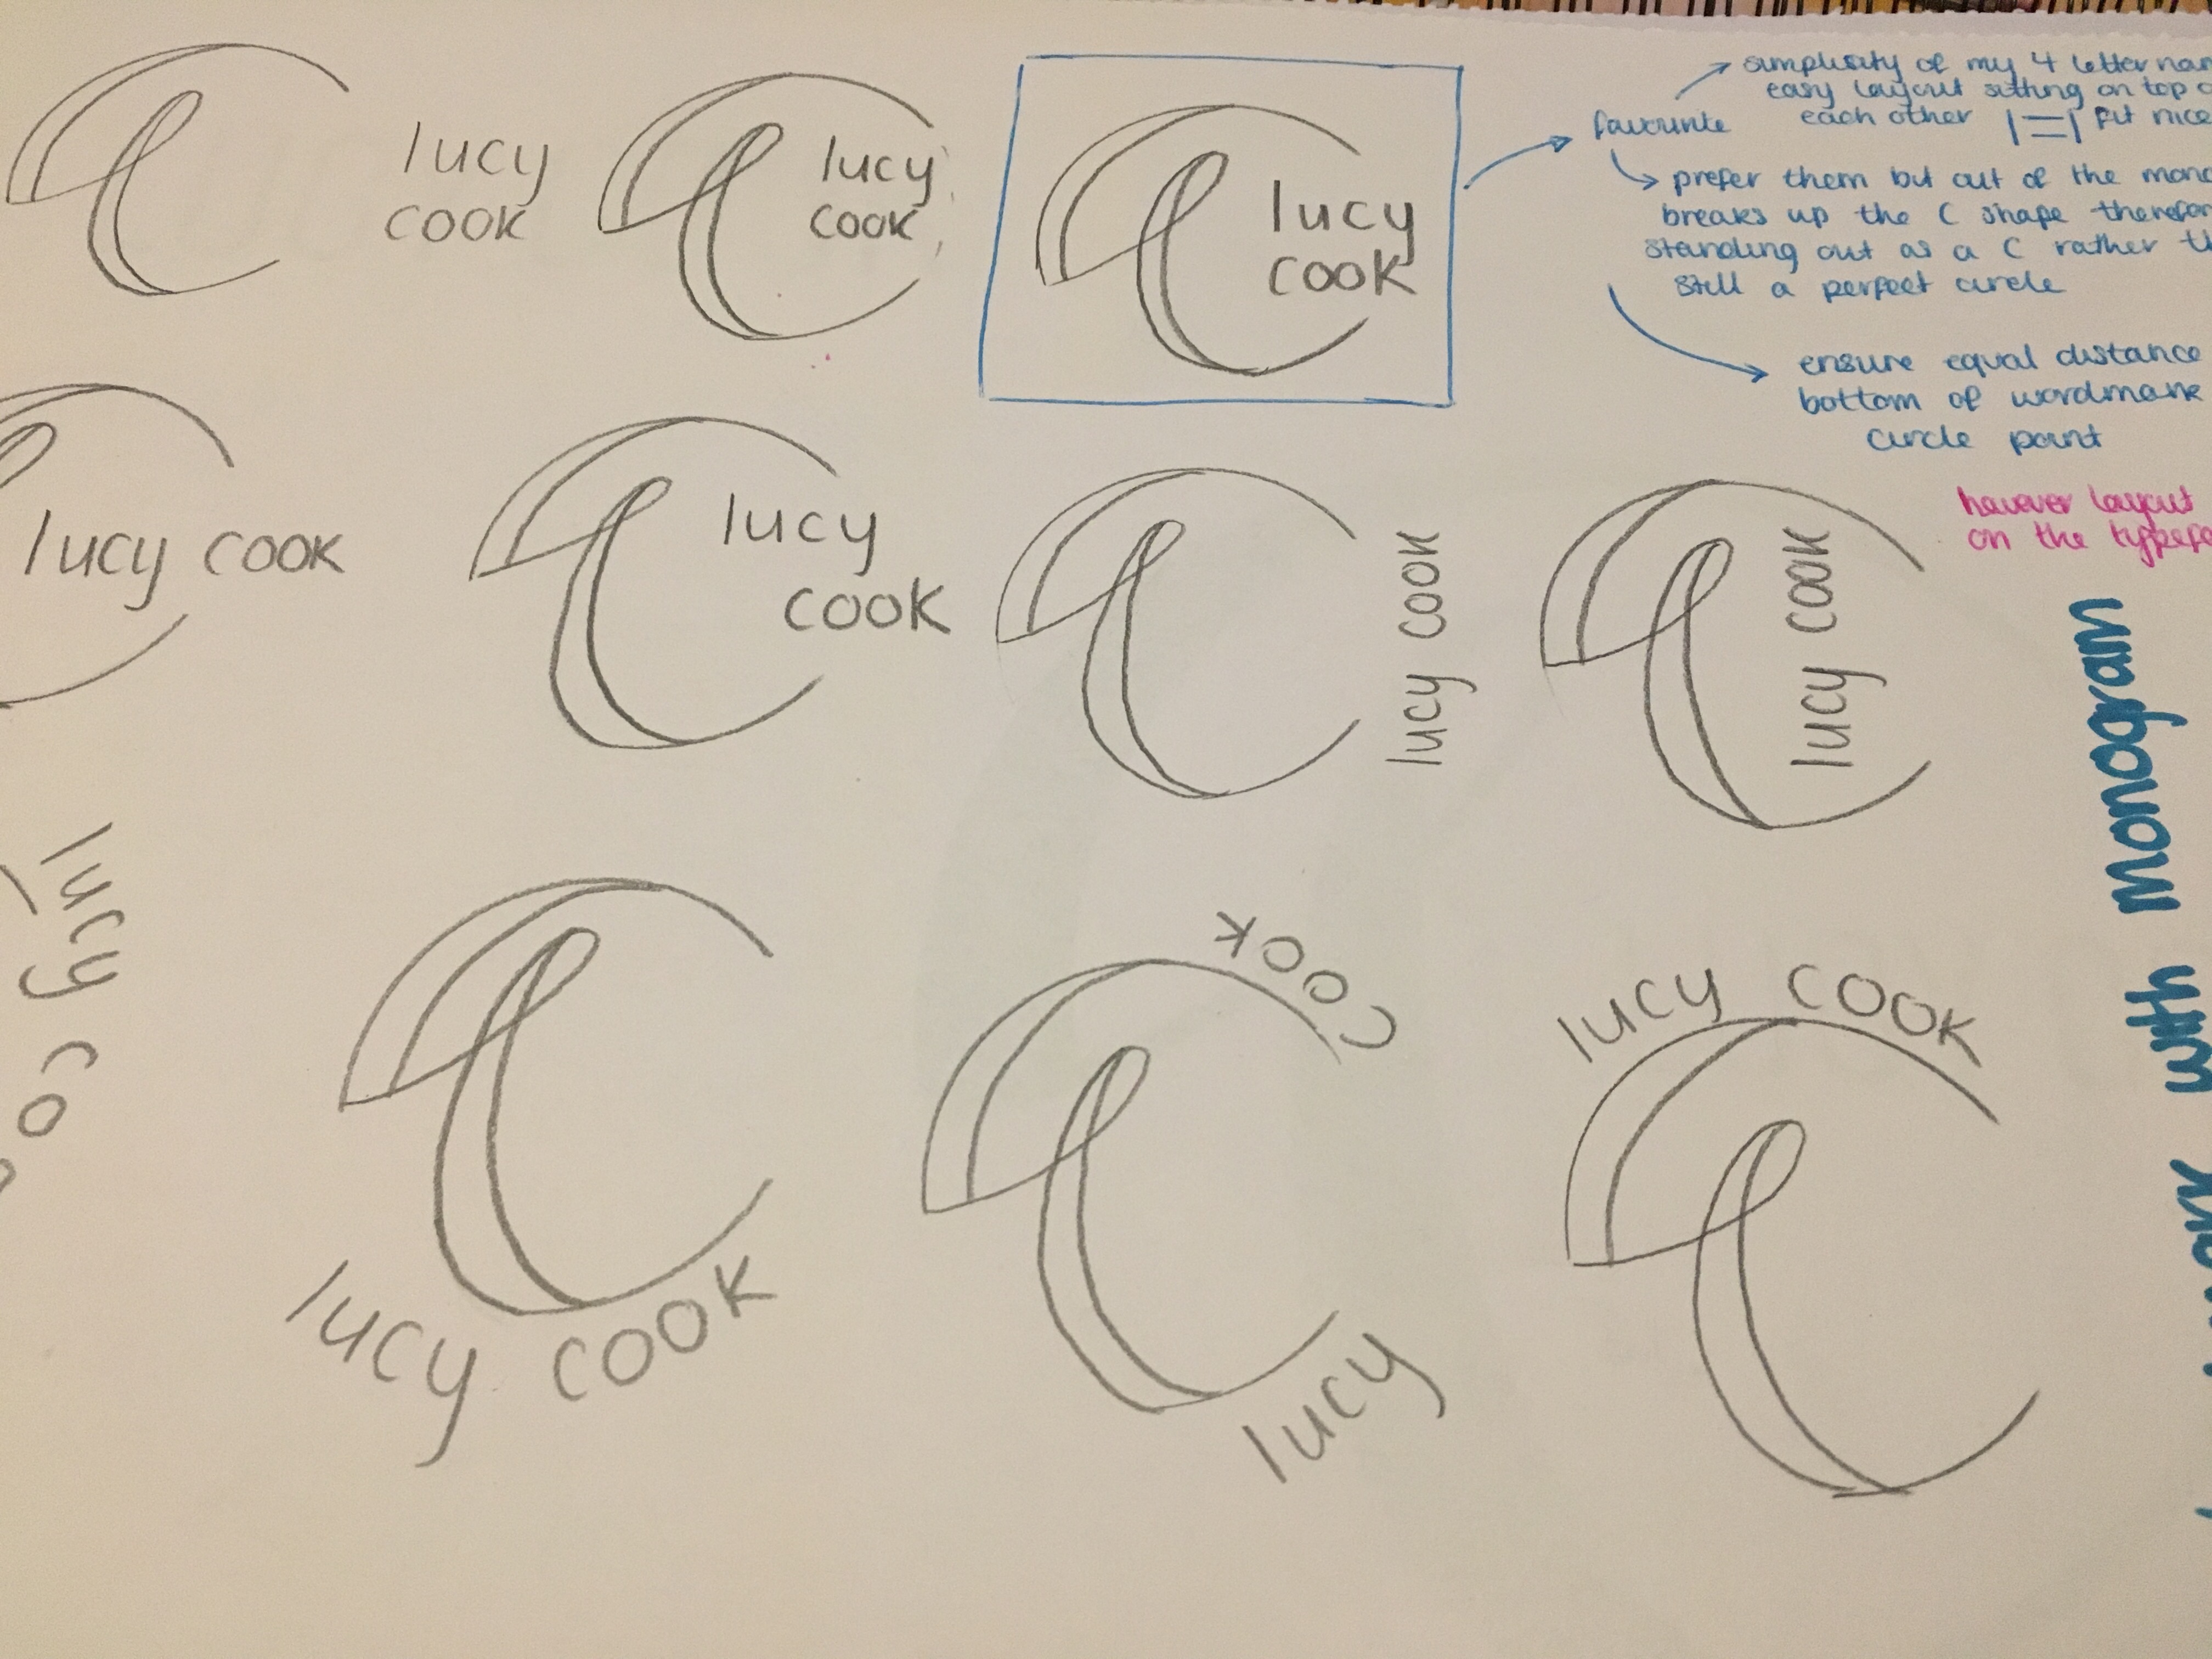 lucy
cook
lucy
cook
lucy
cook
simplisity of my 4 letter nam
easy layout sitting on top o
each other |=| fit nice
favourite
prefer them but out of the mono
breaks up the C shape therefor
standing out as a C rather th
still a perfect circle
ensure equal distance
bottom of wordmark
circle point
lucy cook
lucy
cook
lucy cook
lucy cook
however layout
on the typefa
lucy co
lucy cook
cook
lucy
lucy cook
with monogram